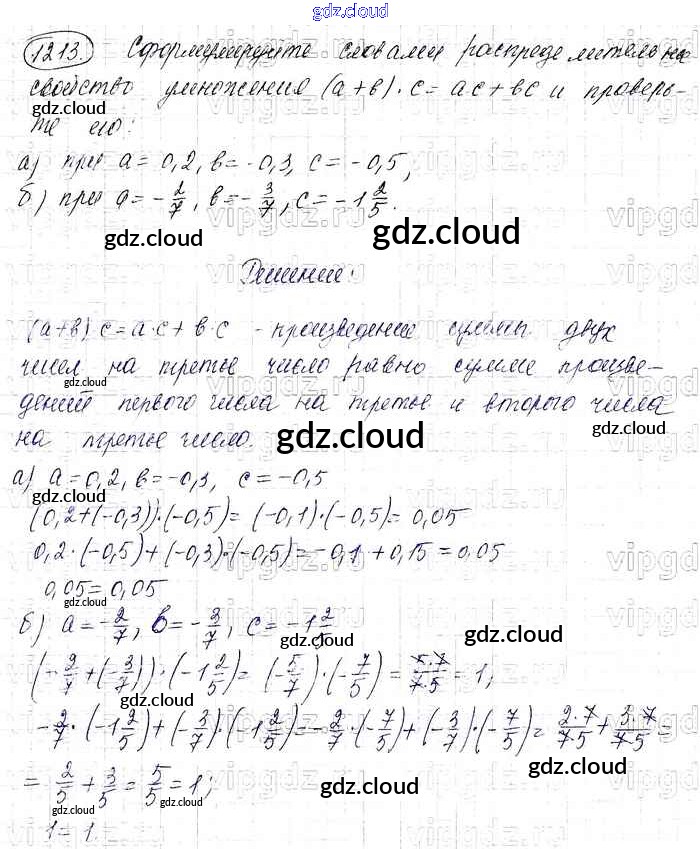 gdz.cloud
1213. Сформулируйте словами распределительное
свойство умножения (a+b)·c=ac+bc и проверь-
те его:
gdz.cloud
а) при a=0,2, b=-0,3, c=-0,5,
б) при a=-2/7, b=-3/7, c=-1 2/5.
gdz.cloud gdz.cloud
Решение:
(a+b) c=a·c+b·c - произведение суммы двух
чисел на третье число равно сумме произве-
gdz.cloud
дений первого числа на третье и второго числа
на третье число.
gdz.cloud gdz.cloud
а) a=0,2, b=-0,3, c=-0,5
gdz.cloud
(0,2+(-0,3))·(-0,5)=(-0,1)·(-0,5)=0,05
0,2·(-0,5)+(-0,3)·(-0,5)=-0,1+0,15=0,05
0,05=0,05
gdz.cloud
б) a=-2/7, b=-3/7, c=-1 2/5
gdz.cloud gdz.cloud
(-2/7+(-3/7))·(-1 2/5)=(-5/7)·(-7/5)=5·7/7·5=1;
gdz.cloud
-2/7·(-1 2/5)+(-3/7)·(-1 2/5)=-2/7·(-7/5)+(-3/7)·(-7/5)=2·7/7·5+3·7/7·5=
=2/5+3/5=5/5=1;
gdz.cloud gdz.cloud gdz.cloud
1=1.